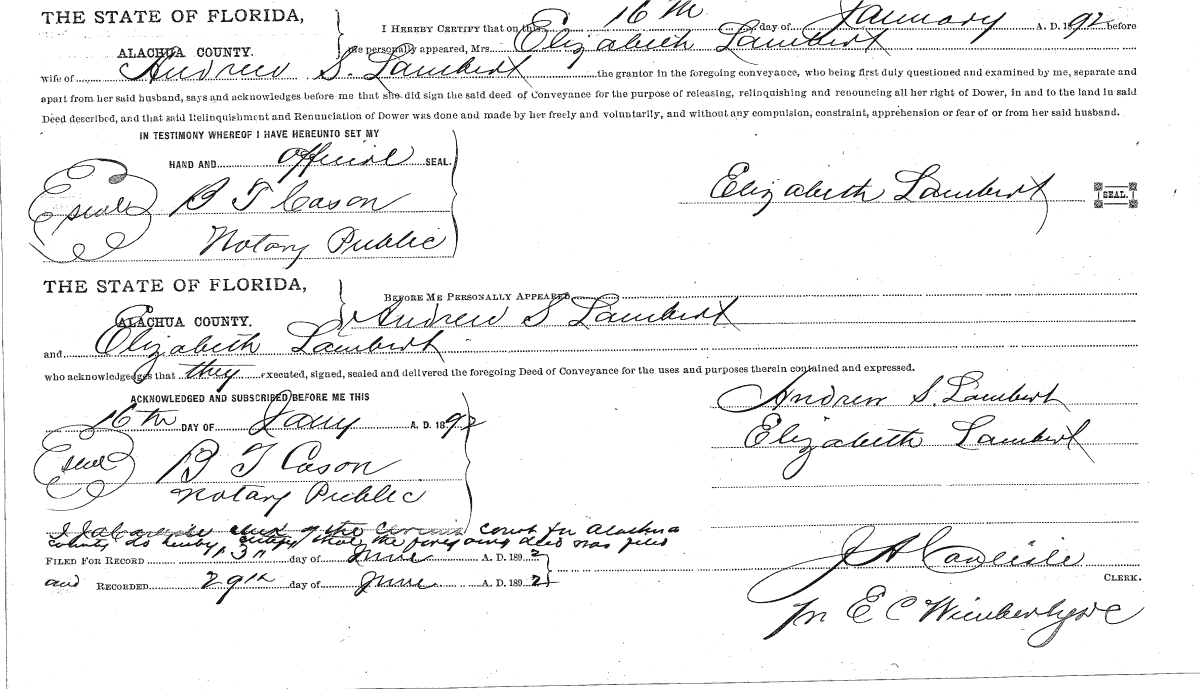 THE STATE OF FLORIDA,
ALACHUA COUNTY.
I HEREBY CERTIFY that on this 16th day of January A. D. 1892 before
me personally appeared, Mrs. Elizabeth Lambert
wife of Andrew S. Lambert the grantor in the foregoing conveyance, who being first duly questioned and examined by me, separate and
apart from her said husband, says and acknowledges before me that she did sign the said deed of Conveyance for the purpose of releasing, relinquishing and renouncing all her right of Dower, in and to the land in said
Deed described, and that said Relinquishment and Renunciation of Dower was done and made by her freely and voluntarily, and without any compulsion, constraint, apprehension or fear of or from her said husband.
IN TESTIMONY WHEREOF I HAVE HEREUNTO SET MY
HAND AND official SEAL.
seal B T Cason
Notary Public
Elizabeth Lambert SEAL.
THE STATE OF FLORIDA,
ALACHUA COUNTY.
BEFORE ME PERSONALLY APPEARED
Andrew S Lambert
and Elizabeth Lambert
who acknowledges that they executed, signed, sealed and delivered the foregoing Deed of Conveyance for the uses and purposes therein contained and expressed.
ACKNOWLEDGED AND SUBSCRIBED BEFORE ME THIS
16th DAY OF Jany A. D. 1892
seal B T Cason
Notary Public
Andrew S. Lambert
Elizabeth Lambert
I J A Carlisle clerk of the Circuit Court for Alachua
County do hereby certify that the foregoing deed was filed
FILED FOR RECORD day of June A. D. 1892
and RECORDED 29th day of June A. D. 1892
J A Carlisle
CLERK.
pr E C Wimberly DC